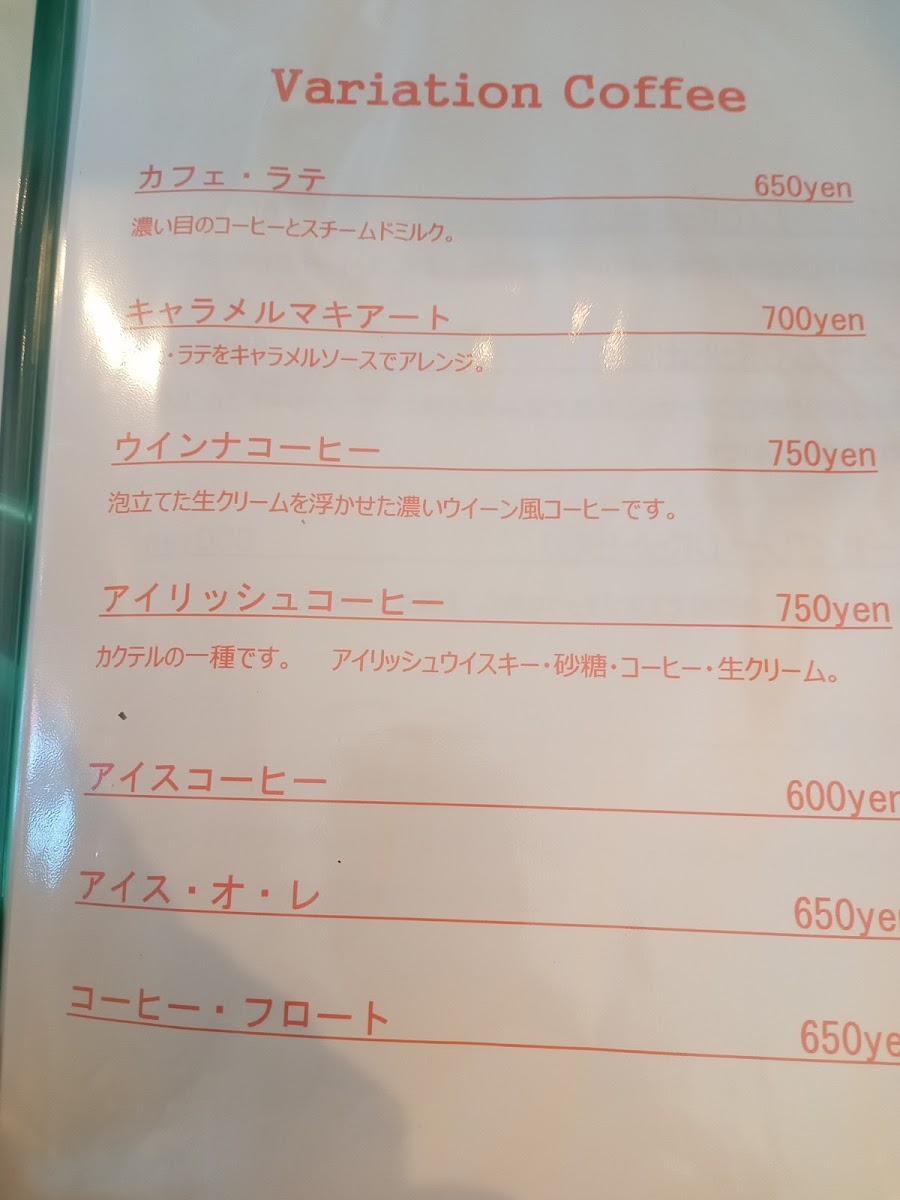 Variation Coffee
カフェ・ラテ 650yen
濃い目のコーヒーとスチームドミルク。
キャラメルマキアート 700yen
・ラテをキャラメルソースでアレンジ。
ウインナコーヒー 750yen
泡立てた生クリームを浮かせた濃いウイーン風コーヒーです。
アイリッシュコーヒー 750yen
カクテルの一種です。 アイリッシュウイスキー・砂糖・コーヒー・生クリーム。
アイスコーヒー 600yen
アイス・オ・レ 650ye
コーヒー・フロート 650ye